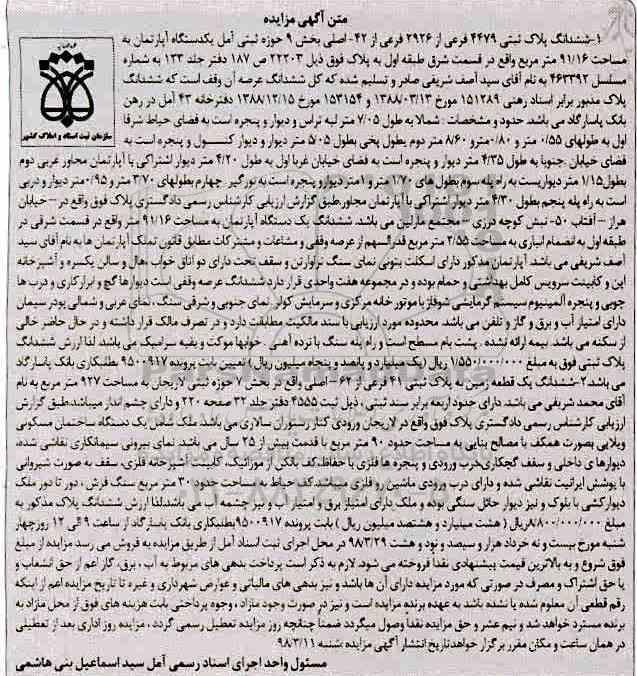 متن آگهی مزایده
۱-ششدانگ پلاک ثبتی ۴۴۷۹ فرعی از ۲۹۲۶ فرعی از ۴۲- اصلی بخش ۹ حوزه ثبتی آمل یکدستگاه آپارتمان به
مساحت ۹۱/۱۶ متر مربع واقع در قسمت شرق طبقه اول به پلاک فوق ذیل ۲۲۲۰۳ ص ۱۸۷ دفتر جلد ۱۳۳ به شماره
مسلسل ۴۶۳۳۹۲ به نام آقای سید آصف شریفی صادر و تسلیم شده که کل ششدانگ عرصه آن وقف است که ششدانگ
پلاک مذبور برابر اسناد رهنی ۱۵۱۲۸۹ مورخ ۱۳۸۸/۰۳/۱۳ و ۱۵۳۱۵۴ مورخ ۱۳۸۸/۱۲/۱۵ دفترخانه ۴۳ آمل در رهن
بانک پاسارگاد می باشد. حدود و مشخصات : شمالا به طول ۷/۰۵ متر لبه تراس و دیوار و پنجره است به فضای حیاط شرقا
اول به طولهای ۰/۵۵ متر و ۰/۸۰ مترو ۸/۶۰ متر دوم بطول پخی بطول ۵/۰۵ متر دیوار و دیوار کنسول و پنجره است به
فضای خیابان .جنوبا به طول ۴/۳۵ متر دیوار و پنجره است به فضای خیابان غربا اول به طول ۴/۲۰ متر دیوار اشتراکی با آپارتمان مجاور غربی دوم
بطول۱/۱۵ متر دیواریست به راه پله سوم بطول های ۱/۷۰ متر و ۱متر دیوار و پنجره است به نورگیر. چهارم بطولهای ۳/۷۰ متر و ۰/۹۵متر دیوار و دربی
است به راه پله پنجم بطول ۴/۳۰ متر دیوار اشتراکی با آپارتمان مجاور.طبق گزارش ارزیابی کارشناس رسمی دادگستری پلاک فوق واقع در – خیابان
هراز – آفتاب ۵۰- نبش کوچه درزی – مجتمع مارلین می باشد. ششدانگ یک دستگاه آپارتمان به مساحت ۹۱/۱۶ متر واقع در قسمت شرقی در
طبقه اول به انضمام انباری به مساحت ۲/۵۵ متر مربع قدرالسهم از عرصه وقفی و مشاعات و مشترکات مطابق قانون تملک آپارتمان ها به نام آقای سید
آصف شریفی می باشد. آپارتمان مذکور دارای اسکلت بتونی نمای سنگ تراورتن و سقف تحت دارای دو اتاق خواب ،هال و سالن یکسره و آشپزخانه
اپن و کابینت سرویس کامل بهداشتی و حمام بوده و در مجموعه هفت واحدی قرار دارد ششدانگ عرصه وقفی است دیوارها گچ و ابزارکاری و درب ها
چوبی و پنجره آلمینیوم سیستم گرمایشی شوفاژ با موتور خانه مرکزی و سرمایش کولر، نمای جنوبی و شرقی سنگ ، نمای غربی و شمالی پودر سیمان
دارای امتیاز آب و برق و گاز و تلفن می باشد. محدوده مورد ارزیابی با سند مالکیت مطابقت دارد و در تصرف مالک قرار داشته و در حال حاضر خالی
از سکنه می باشد. بیمه ارائه نشده . پشت بام مسطح است و راه پله سنگ با نرده آهنی . خوابها موکت و بقیه سرامیک می باشد لذا ارزش ششدانگ
پلاک ثبتی فوق به مبلغ ۱/۵۵۰/۰۰۰/۰۰۰ ریال (یک میلیارد و پانصد و پنجاه میلیون ریال) تعیین بابت پرونده ۹۵۰۰۹۱۷ بطلبکاری بانک پاسارگاد
می باشد۲-ششدانگ یک قطعه زمین به پلاک ثبتی ۴۱ فرعی از ۶۲ – اصلی واقع در بخش ۷ حوزه ثبتی لاریجان به مساحت ۹۲۷ متر مربع به نام
آقای محمد شریفی می باشد. دارای حدود اربعه برابر سند ثبتی ، ذیل ثبت ۴۵۵۵ دفتر جلد ۳۲ صفحه ۲۲۰ و دارای چشم انداز میباشد.طبق گزارش
ارزیابی کارشناس رسمی دادگستری پلاک فوق واقع در لاریجان ورودی کنار رستوران سالاری می باشد. ملک شامل یک دستگاه ساختمان مسکونی
ویلایی بصورت همکف با مصالح بنایی به مساحت حدود ۹۰ متر مربع با قدمت بیش از ۲۵ سال می باشد. نمای بیرونی سیمانکاری نقاشی شده،
دیوارهای داخلی و سقف گچکاری،درب ورودی و پنجره ها فلزی با حفاظ،کف بالکن از موزائیک، کابینت آشپزخانه فلزی، سقف به صورت شیروانی
با پوشش ایرانیت نقاشی شده و دارای درب ورودی ماشین رو فلزی میباشد.کف حیاط به مساحت حدود ۳۰ متر مربع سنگ فرش ، دور تا دور ملک
دیوارکشی با بلوک و نیز دیوار حائل سنگی بوده و ملک دارای امتیاز برق و امتیاز آب و نیز چشمه آب می باشد،لذا ارزش ششدانگ پلاک مذکور به
مبلغ ۸/۸۰۰/۰۰۰/۰۰۰ریال ( هشت میلیارد و هشتصد میلیون ریال ) بابت پرونده ۹۵۰۰۹۱۷بطلبکاری بانک پاسارگاد از ساعت ۹ الی ۱۲ روزچهار
شنبه مورخ بیست و نه خرداد هزار و سیصد و نود و هشت ۹۸/۳/۲۹ در محل اجرای ثبت اسناد آمل از طریق مزایده به فروش می رسد مزایده از مبلغ
فوق شروع و به بالاترین قیمت پیشنهادی نقدا فروخته می شود. لازم به ذکر است پرداخت بدهی های مربوط به آب ، برق، گاز اعم از حق انشعاب و
یا حق اشتراک و مصرف در صورتی که مورد مزایده دارای آن ها باشد و نیز بدهی های مالیاتی و عوارض شهرداری و غیره تا تاریخ مزایده اعم از اینکه
رقم قطعی آن معلوم شده یا نشده باشد به عهده برنده مزایده است و نیز در صورت وجود مازاد ، وجوه پرداختی بابت هزینه های فوق از محل مازاد به
برنده مسترد خواهد شد و نیم عشر و حق مزایده نقدا وصول میگردد ضمنا چنانچه روز مزایده تعطیل رسمی گردد ، مزایده روز اداری بعد از تعطیلی
در همان ساعت و مکان مقرر برگزار خواهد.تاریخ انتشار آگهی مزایده شنبه ۹۸/۳/۱۱
مسئول واحد اجرای اسناد رسمی آمل سید اسماعیل بنی هاشمی
سازمان ثبت اسناد و املاک کشور